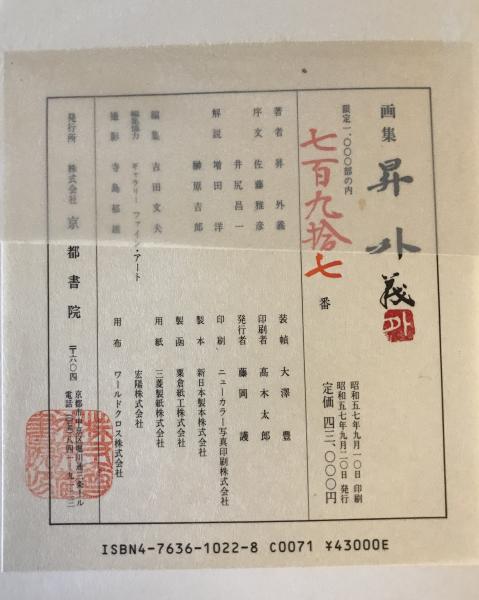 画集 昇外義
限定一、〇〇〇部の内
七百九拾七
番
昭和五七年九月一〇日 印刷
昭和五七年九月二〇日 発行
定価 四三、〇〇〇円
著者 昇外義
序文 佐藤雅彦
井尻昌一
解説 増田洋
榊原吉郎
編集 吉田文夫
編集協力 ギャラリーファイン・アート
撮影 寺島郁雄
装幀 大澤豊
印刷者 髙木太郎
発行者 藤岡護
印刷 ニューカラー写真印刷株式会社
製本 新日本製本株式会社
製函 栗倉紙工株式会社
用紙 三菱製紙株式会社
宏陽株式会社
用布 ワールドクロス株式会社
発行所 株式会社 京都書院
〒六〇四 京都市中京区堀川通三条
ISBN4-7636-1022-8 C0071 ¥43000E